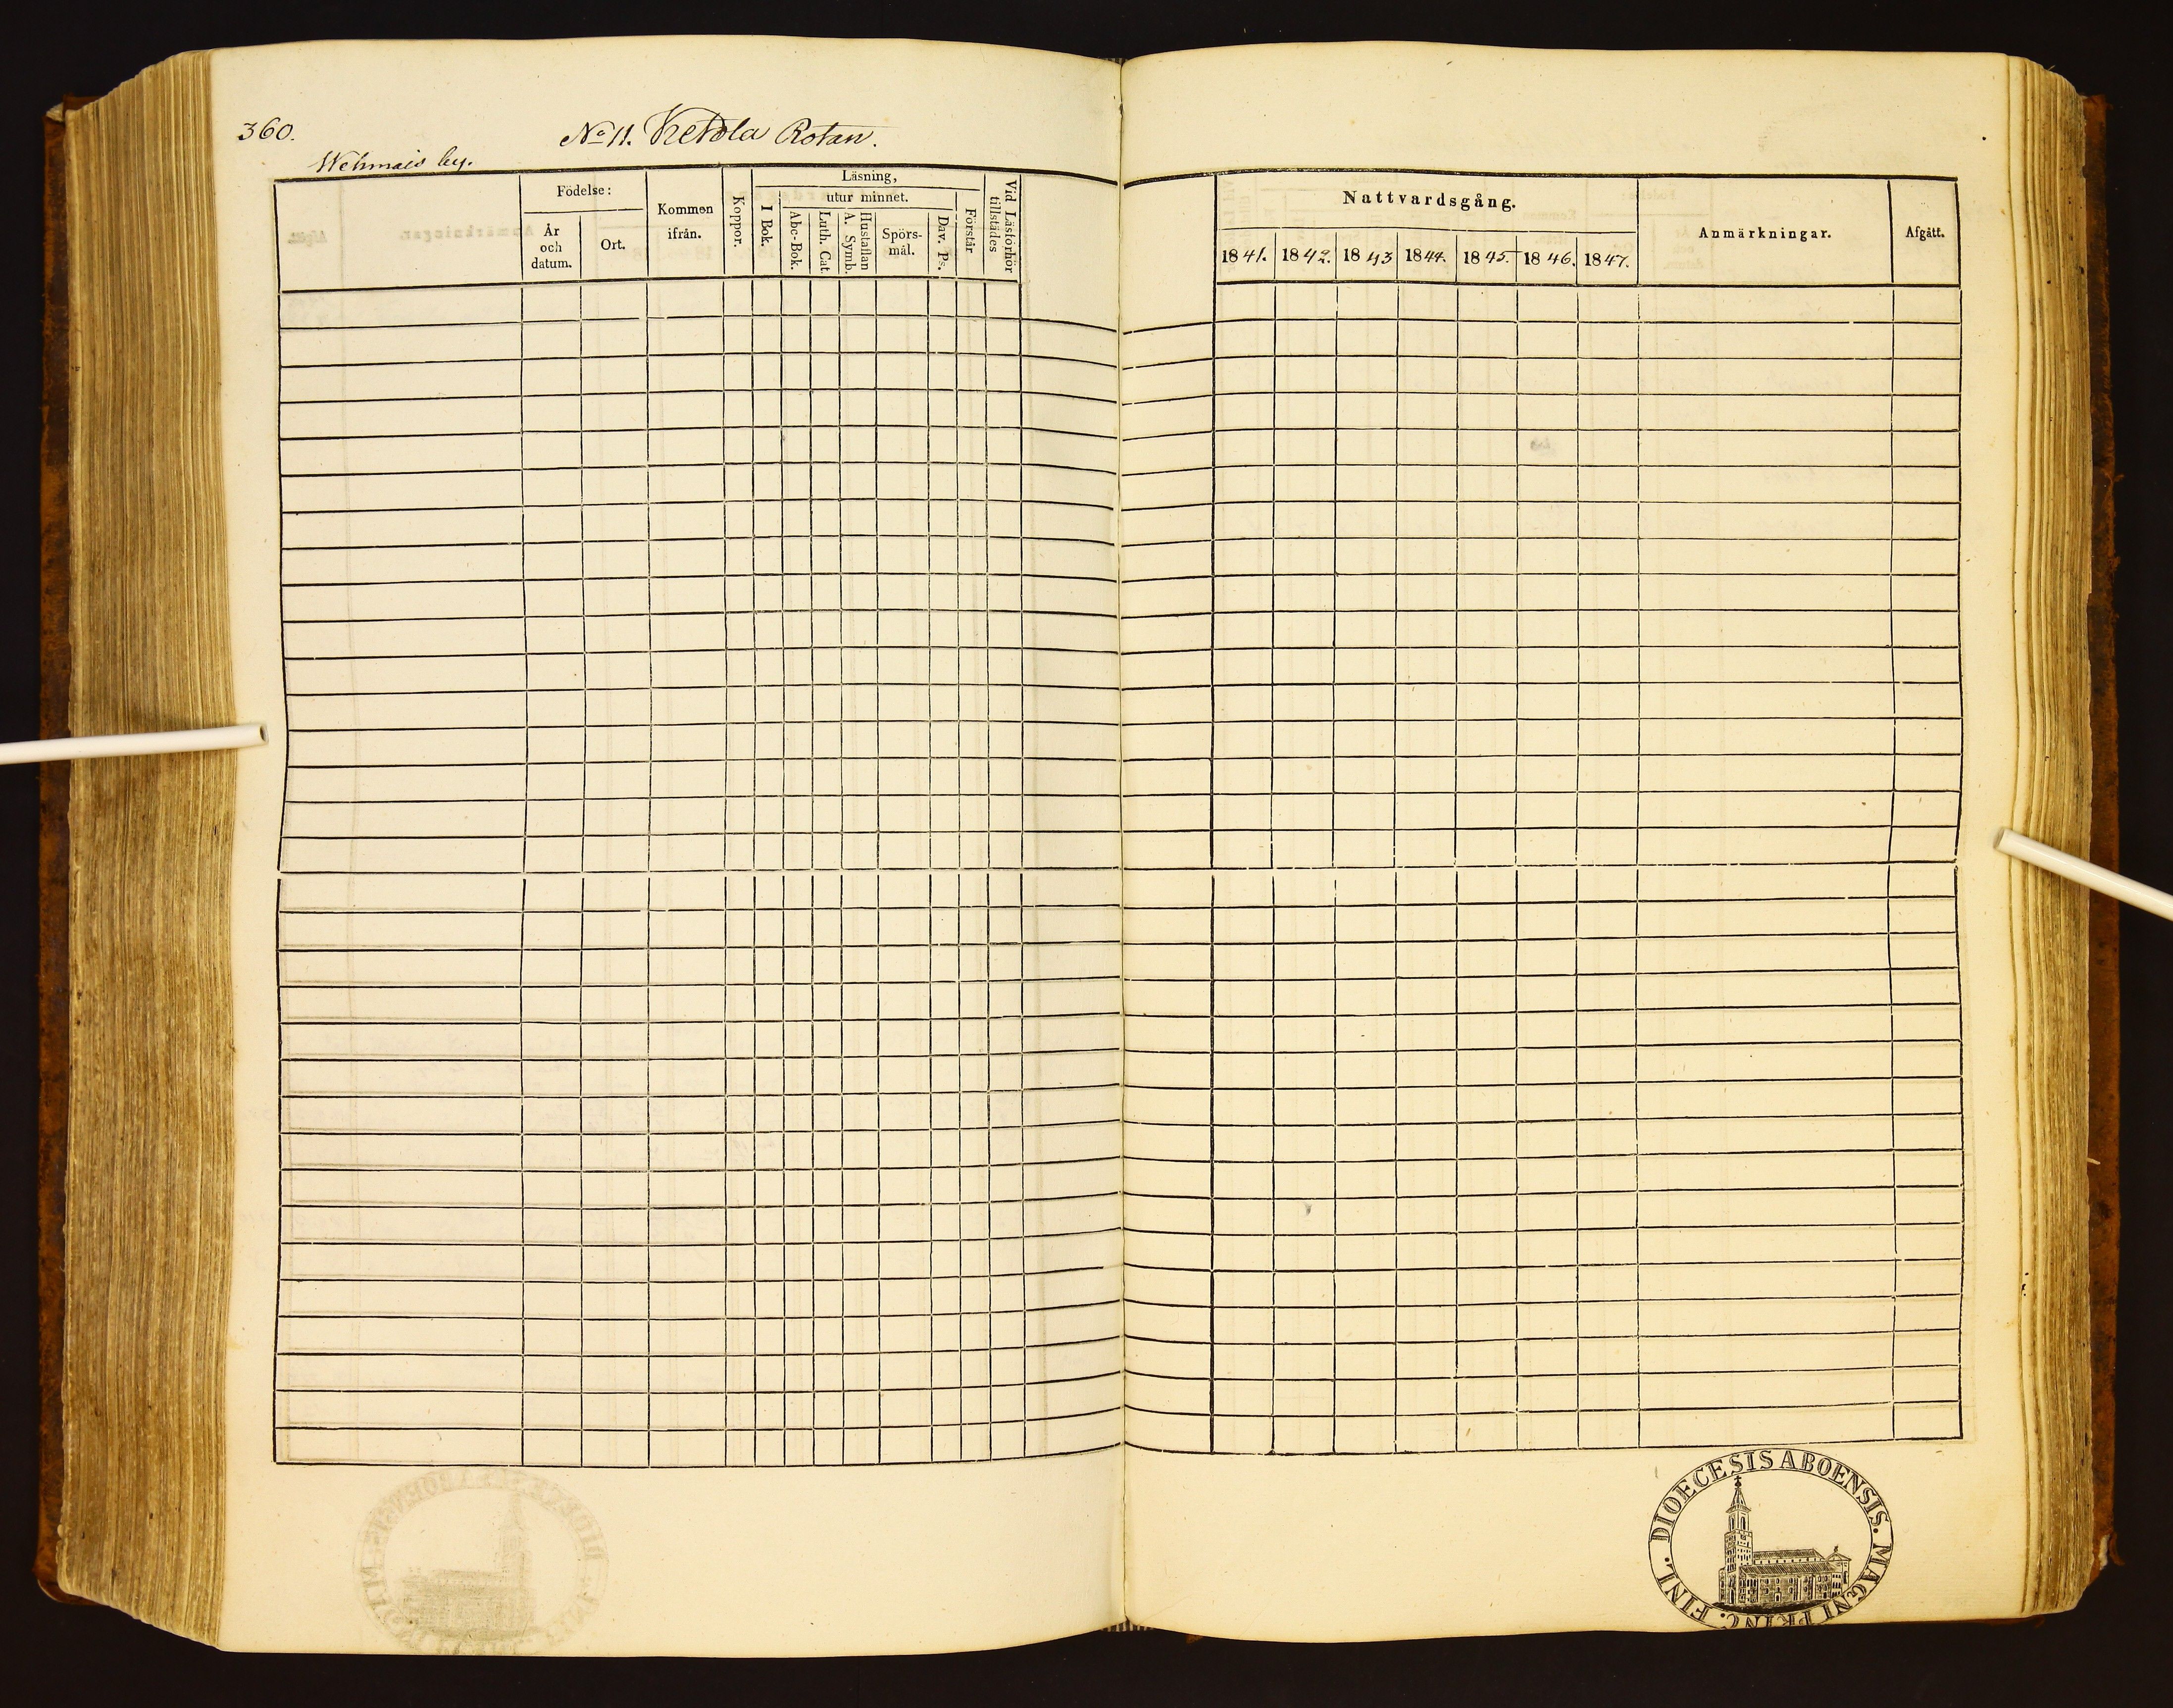 360.
No 11. Ketola Rotan.
Wehmais by.
Födelse:
År och datum.
Ort.
Kommen ifrån.
Koppor.
Läsning,
I Bok.
utur minnet.
Abc-Bok.
Luth. Cat.
A. Symb.
Hustaflan
Spörs-
mål.
Dav. Ps.
Förstår
Vid Läsförhör
tillstädes
Nattvardsgång.
1841. 1842. 1843 1844. 1845. 1846. 1847.
Anmärkningar.
Afgått.
DIOECESIS ABOENSIS. MAGNI PRINC. FINL.